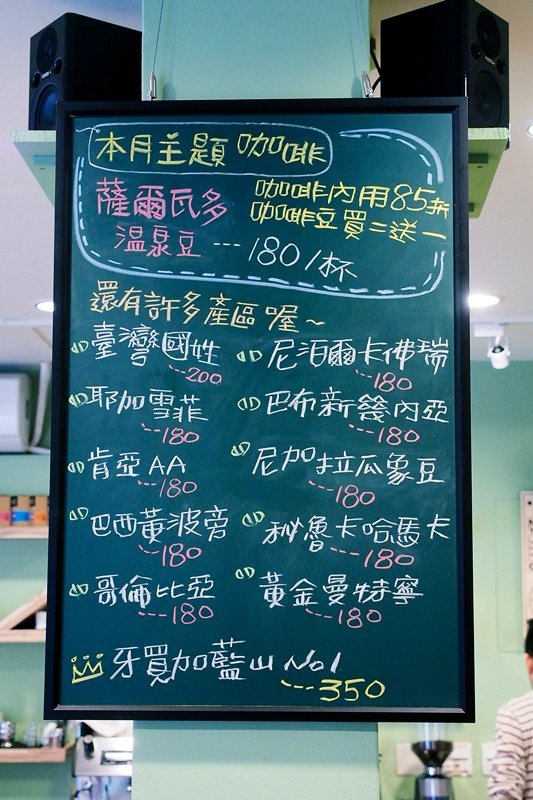 本月主題 咖啡
薩爾瓦多
溫泉豆 ---180/杯
咖啡內用85折
咖啡豆買二送一
還有許多產區喔~
臺灣國姓
---200
尼泊爾卡佛瑞
---180
耶加雪菲
---180
巴布新幾內亞
---180
肯亞AA
---180
尼加拉瓜象豆
---180
巴西黃波旁
---180
秘魯卡哈馬卡
---180
哥倫比亞
---180
黃金曼特寧
---180
牙買加藍山 No1
---350